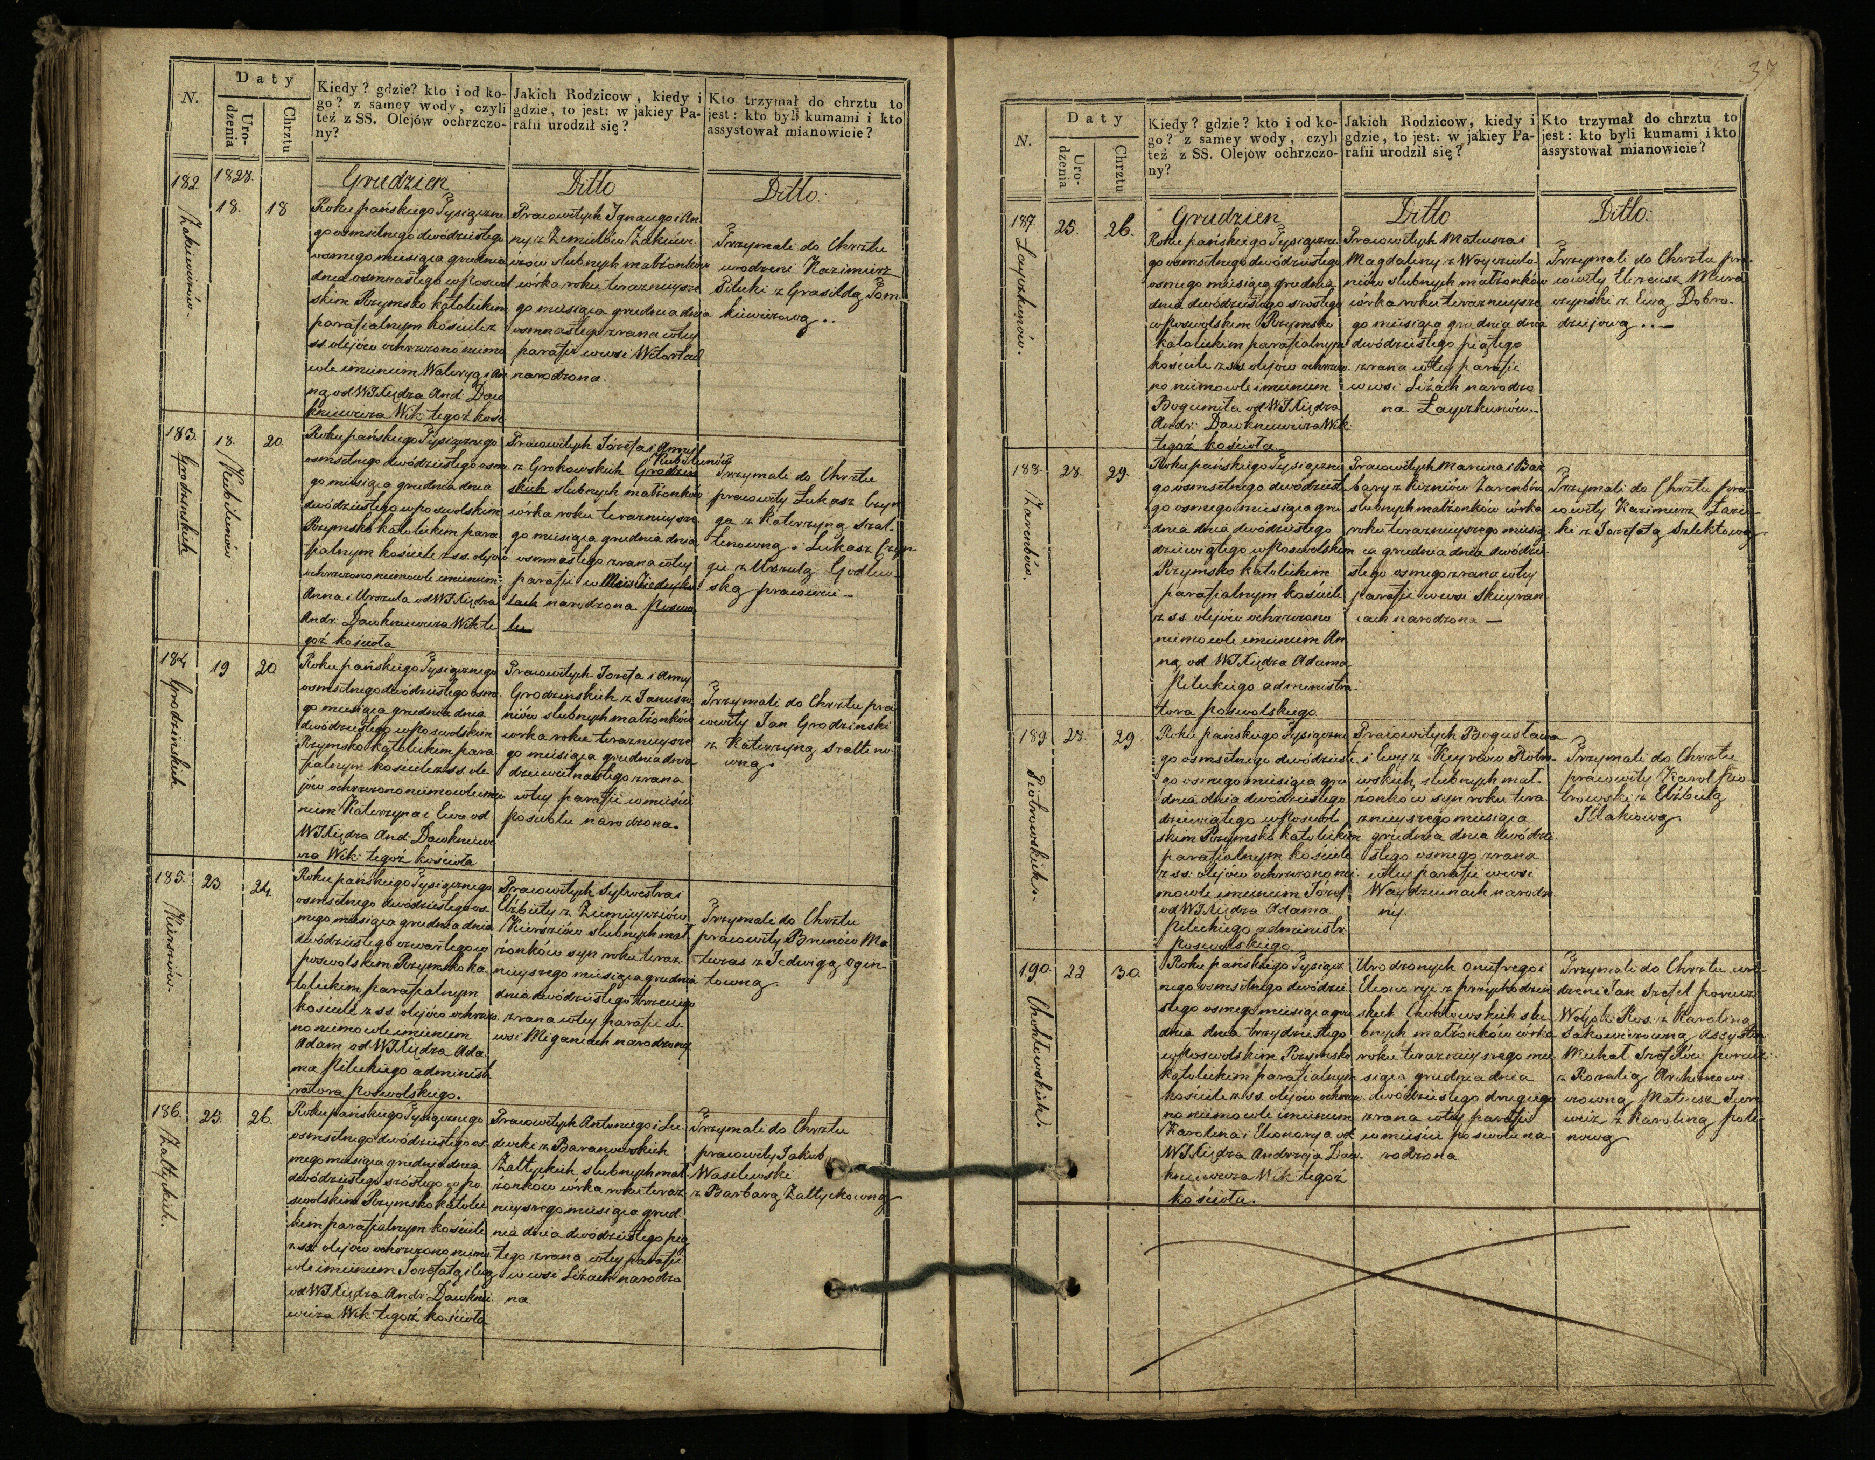 N.
Daty
Uro-
dzenia
Chrztu
Kiedy? gdzie? kto i od ko-
go? z samey wody, czyli
też z SS. Olejów ochrzczo-
ny?
Jakich Rodzicow, kiedy i
gdzie, to jest: w jakiey Pa-
rafii urodził się?
Kto trzymał do chrztu to
jest: kto byli kumami i kto
assystował mianowicie?
182
1828.
18.
18
Grudzien
Roku pańskiego Tysiączne
go osmsetnego dwódziestego
osmego miesiąca grudnia
dnia osmnastego w Poswol
skim Rzymsko katolickim
parafialnym kościele z
ss. olejów ochrzczono niemo
wle imieniem Waleryą i An
ną od WJXiędza And. Daw
kniewicza Wik. tegoż kość.
Ditto
Pracowitych Ignacego i An
ny z
ślubnych małżonków
córka roku teraznieysze
go miesiąca grudnia dnia
osmnastego zrana w tey
parafii w wsi
narodzona.
Ditto.
Trzymali do Chrztu
urodzeni Kazimierz
Pilecki z Grasildą
183.
Grodzinskich
18.
Kubilunów
20.
Roku pańskiego Tysiącznego
osmsetnego dwódziestego osme
go miesiąca grudnia dnia
dwódziestego w Poswolskim
Rzymsko katolickim para
fialnym kościele z ss. olejów
ochrzczono niemowle imieniem
Anna i Urszula od WJXiędza
Andr. Dawkniewicza Wik. te
goż kościoła
Pracowitych Jozefa i Anny
Kubilunów
z Grokowskich Grodzin
skich ślubnych małżonków
córka roku teraznieysze
go miesiąca grudnia dnia
osmnastego zrana w tey
parafii w
narodzona
Trzymali do Chrztu
pracowity Łukasz
z Katerzyną Szal
tenowną i Łukasz
z Urszulą Godlew
ską pracowici
184
Grodzinskich.
19
20
Roku pańskiego Tysiącznego
osmsetnego dwódziestego osme
go miesiąca grudnia dnia
dwódziestego w Poswolskim
Rzymsko katolickim para
fialnym kościele z ss. ole
jów ochrzczono niemowle imie
niem Katerzyna i Ewa od
WJXiędza And. Dawkniewi
cza Wik. tegoż kościoła
Pracowitych Jozefa i Anny
Grodzinskich z Janusze
niów ślubnych małżonków
córka roku teraznieysze
go miesiąca grudnia dnia
dziewietnastego zrana
w tey parafii w mieście
poswolu narodzona.
Trzymali do Chrztu pra
cowity Jan Grodzinski
z Katerzyną Szalteno
wną.
185.
23
24
Roku pańskiego Tysiącznego
osmsetnego dwódziestego os
mego miesiąca grudnia dnia
dwódziestego czwartego w
poswolskim Rzymsko ka
tolickim parafialnym
kościele z ss. olejów ochrzczo
no niemowle imieniem
Adam od WJXiędza Ada
ma Pileckiego administ
ratora poswolskiego.
Pracowitych Sylwestra i
Elżbiety z
ślubnych mał
żonków syn roku teraz
nieyszego miesiąca grudnia
dnia dwódziestego trzeciego
zrana w tey parafii w
wsi Miganiach narodzony
Trzymali do Chrztu
pracowity Brunów Ma
teusz z Jedwigą Ogin
towną
186.
Załtyckich.
25.
26.
Roku pańskiego Tysiącznego
osmsetnego dwódziestego os
mego miesiąca grudnia dnia
dwódziestego szóstego w po
swolskim Rzymsko katolic
kim parafialnym kościele
z ss. olejów ochrzczono niemo
wle imieniem Jozefatą i Ewą
od WJXiędza Andr. Dawknie
wicza Wik. tegoż kościoła
Pracowitych Antoniego i Lu
dwiki z Baranowskich
Załtyckich ślubnych mał
żonków córka roku teraz
nieyszego miesiąca grud
nia dnia dwódziestego pią
tego zrana w tey parafii
w wsi Liżach narodzo
na
Trzymali do Chrztu
pracowity Jakub
Wasilewski
z Barbarą Załtyckowną
37
N.
Daty
Uro-
dzenia
Chrztu
Kiedy? gdzie? kto i od ko-
go? z samey wody, czyli
też z SS. Olejow ochrzczo-
ny?
Jakich Rodzicow, kiedy i
gdzie, to jest: w jakiey Pa-
rafii urodził się?
Kto trzymał do chrztu to
jest: kto byli kumami i kto
assystował mianowicie?
187
Łayczkunów.
25.
26.
Grudzien
Roku pańskiego Tysiączne
go osmsetnego dwódziestego
osmego miesiąca grudnia
dnia dwódziestego szóstego
w Poswolskim Rzymsko
katolickim parafialnym
kościele z ss. olejów ochrzczo
no niemowle imieniem
Bogumiła od WJXiędza
Andr. Dawkniewicza Wik
tegoż kościoła
Ditto
Pracowitych Mateusza i
Magdaleny z
ślubnych małżonków
córka roku teraznieysze
go miesiąca grudnia dnia
dwódziestego piątego
zrana w tey parafii
w wsi Liżach narodzo
na Łayczkunów
Ditto.
Trzymali do Chrztu pra
cowity
z Ewą Dobro
dziejową
188.
Zarenbów.
28.
29.
Roku pańskiego Tysiączne
go osmsetnego dwódziest
go osmego miesiąca gru
dnia dnia dwódziestego
dziewiątego w Poswolskim
Rzymsko katolickim
parafialnym kościele
z ss. olejów ochrzczono
niemowle imieniem An
ną od WJXiędza Adama
Pileckiego administra
tora poswolskiego
Pracowitych Marcina i Bar
bary z Zarenbów
ślubnych małżonków córka
roku teraznieyszego miesią
ca grudnia dnia dwódzie
stego osmego zrana w tey
parafii w wsi
narodzona
Trzymali do Chrztu pra
cowity Kazimierz
z Jozefatą
189
Piotrowskich.
28.
29.
Roku pańskiego Tysiączne
go osmsetnego dwódzieste
go osmego miesiąca gru
dnia dnia dwódziestego
dziewiątego w Poswol
skim Rzymsko katolickim
parafialnym kościele
z ss. olejów ochrzczono nie
mowle imieniem Jozef
od WJXiędza Adama
Pileckiego administr
poswolskiego
Pracowitych Bogusława
i Ewy z Piotro
wskich ślubnych mał
żonków syn roku tera
znieyszego miesiąca
grudnia dnia dwódzie
stego osmego zrana
w tey parafii w wsi
narodzo
ny.
Trzymali do Chrztu
pracowity Karol
z Elżbietą
190
22
30
Roku pańskiego Tysiącz
nego osmsetnego dwódzie
stego osmego miesiąca gru
dnia dnia trzydziestego
w Poswolskim Rzymsko
katolickim parafialnym
kościele z ss. olejów ochrzczo
no niemowle imieniem
Karolina i Eleonorya od
WJXiędza Andrzeja Daw
kniewicza Wik tegoż
kościoła.
Urodzonych Onufrego i
ślu
bnych małżonków córka
roku teraznieyszego mie
siąca grudnia dnia
dwódziestego drugiego
zrana w tey parafii
w mieście poswolu na
rodzona
Trzymali do Chrztu uro
dzeni Jan Jozef porucz
z Karoliną
Assysto
Michał porucz
z Rozalią
Mateusz
z Karoliną